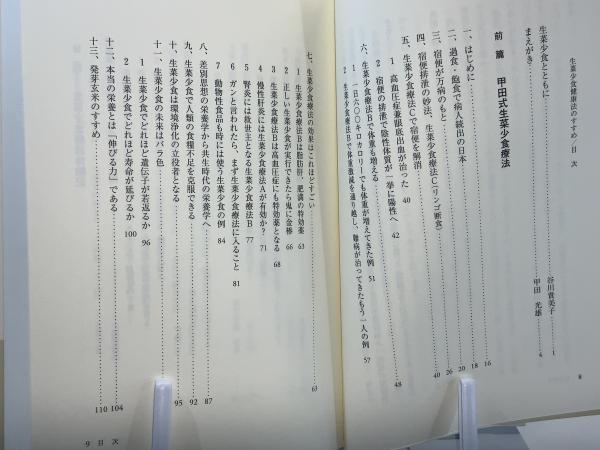 生菜少食健康法のすすめ／目次
生菜少食とともに 谷川貴美子 1
まえがき 甲田 光雄 4
前篇 甲田式生菜少食療法
一、はじめに 16
二、過食・飽食で病人続出の日本 18
三、宿便が万病のもと 20
四、宿便排泄の妙法、生菜少食療法C（リンゴ断食） 26
五、生菜少食療法Cで宿便を解消 40
1 高血圧症兼眼底出血が治った 40
2 宿便の排泄で陰性体質が一挙に陽性へ 42
六、生菜少食療法Bで体重も増える 48
1 一日六〇〇キロカロリーでも体重が増えてきた例 51
2 生菜少食療法Bで体重激減を通り越し、難病が治ってきたもう一人の例 57
8
七、生菜少食療法の効果はこれほどすごい 63
1 生菜少食療法Bは脂肪肝、肥満の特効薬 63
2 正しい生菜少食が実行できたら鬼に金棒 66
3 生菜少食療法Bは高血圧症にも特効薬となる 68
4 慢性肝炎には生菜少食療法Aが有効か？ 71
5 腎炎には救世主となる生菜少食療法B 77
6 ガンと言われたら、まず生菜少食療法に入ること 81
7 動物性食品も時には使う生菜少食の例 84
八、差別思想の栄養学から共生時代の栄養学へ 87
九、生菜少食で人類の食糧不足を克服できる 92
十、生菜少食は環境浄化の立役者となる 95
十一、生菜少食の未来はバラ色
1 生菜少食でどれほど遺伝子が若返るか 96
2 生菜少食でどれほど寿命が延びるか 100
十二、本当の栄養とは「伸びる力」である 104
十三、発芽玄米のすすめ 110
9 目次